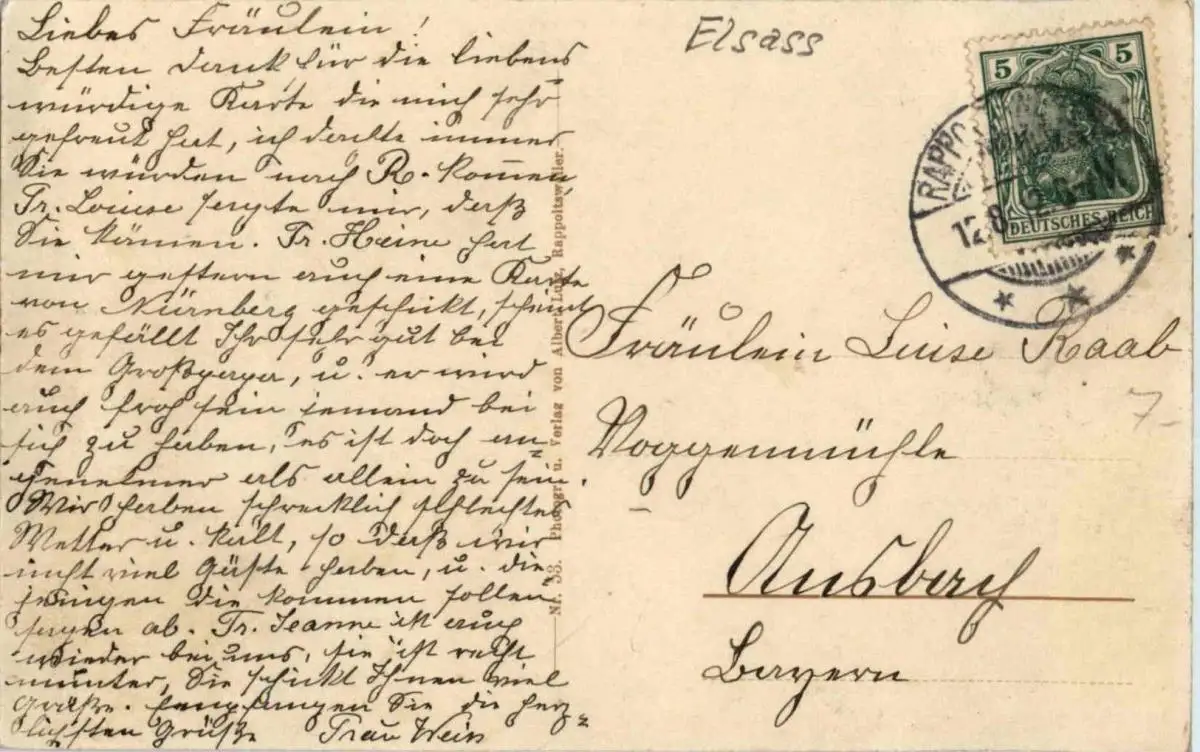 Liebes Fräulein!
Besten Dank für die liebens
würdige Karte die mich sehr
gefreut hat, ich dachte immer
Sie würden nach R. kommen
Fr. Louise sagte mir, daß
Sie kämen. Fr. Heine hat
mir gestern auch eine Karte
von Nürnberg geschikt, scheint
es gefällt Ihr sehr gut bei
dem Großpapa, u. er wird
auch froh sein jemand bei
sich zu haben, es ist doch an
genehmer als allein zu sein.
Wir haben schrecklich schlechtes
Wetter u. kalt, so daß wir
nicht viel Gäste haben, u. die
jenigen die kommen sollen
sagen ab. Fr. Jeanne ist auch
wieder bei uns, sie ist recht
munter, Sie schikt Ihnen viel
Grüße. Empfangen Sie die herz
lichsten Grüße Frau Weis
Nr. 53. Photogr. u. Verlag von Albert Lutz, Rappoltsweiler.
Elsass
5 5
DEUTSCHES REICH
RAPPO
12.8.12.
Fräulein Luise Raab
Voggenmühle
7-
Ansbach
Bayern